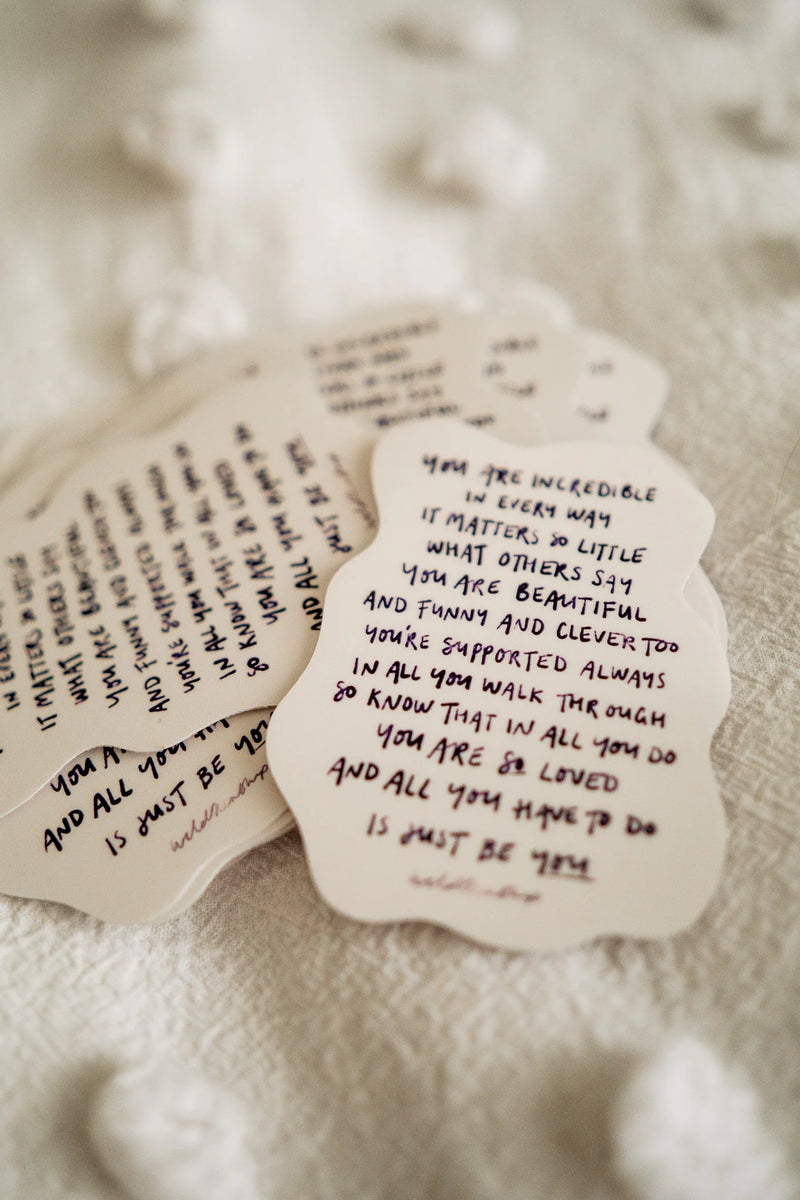 YOU ARE INCREDIBLE
IN EVERY WAY
IT MATTERS SO LITTLE
WHAT OTHERS SAY
YOU ARE BEAUTIFUL
AND FUNNY AND CLEVER TOO
YOU'RE SUPPORTED ALWAYS
IN ALL YOU WALK THROUGH
SO KNOW THAT IN ALL YOU DO
YOU ARE SO LOVED
AND ALL YOU HAVE TO DO
IS JUST BE YOU
IN EVERY
IT MATTERS SO LITTLE
WHAT OTHERS SAY
YOU ARE BEAUTIFUL
AND FUNNY AND CLEVER
YOU'RE SUPPORTED ALWAYS
IN ALL YOU WALK THROUGH
SO KNOW THAT IN ALL YOU DO
YOU ARE SO LOVED
AND ALL YOU HAVE TO DO
JUST BE YOU
YOU A
AND ALL YOU
IS JUST BE YOU